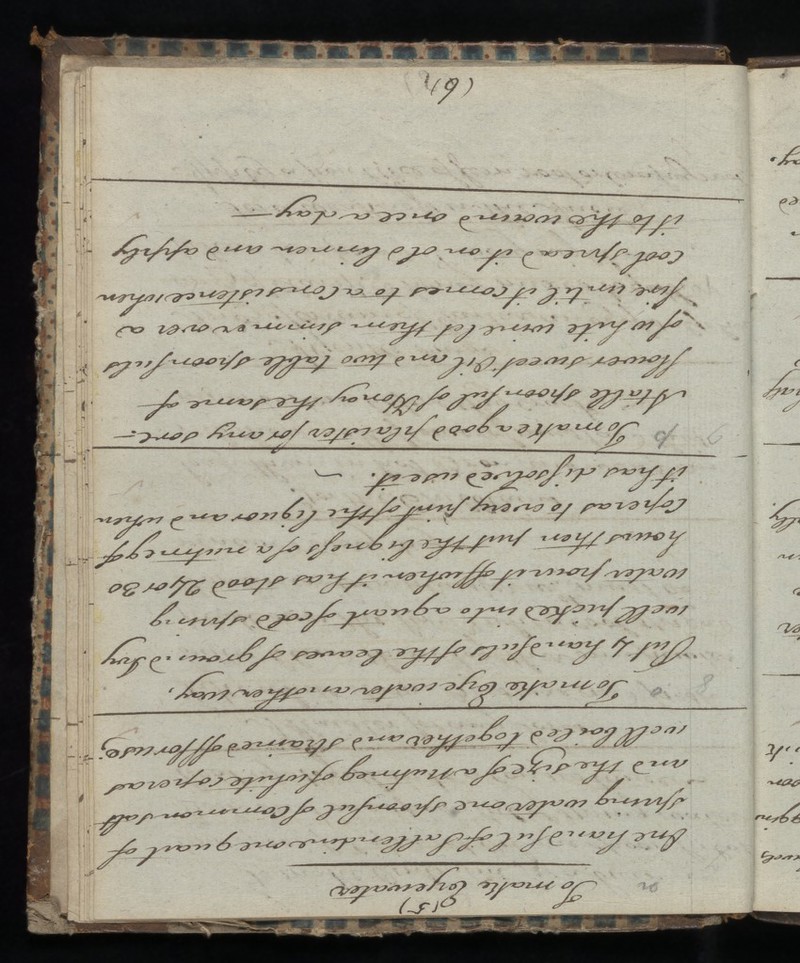 (5)
To make Eyewater
One handful of Sallendine one quart of
spring water one spoonful of Common salt
and the size of a Nutmeg of white coperas
well boiled together and strained off for use;
To make Eye water another way,
Put 4 handfuls of the leaves of ground Ivy
well picked into a quart of cold spring
water pour it off when it has stood 24 or 30
hours then put the bigness of a nutmeg of
coperas to every pint of the liquor and when
it has dissolved use it. ~
To make a good plaister for any sore.—
A table spoonful of Honey the same of
flower sweet Oil and two table spoonfuls
of white wine let them simmer over a
fire until it comes to a Consistence when
cool spread it on old linnen and apply
it to the wound once a day —
(6)